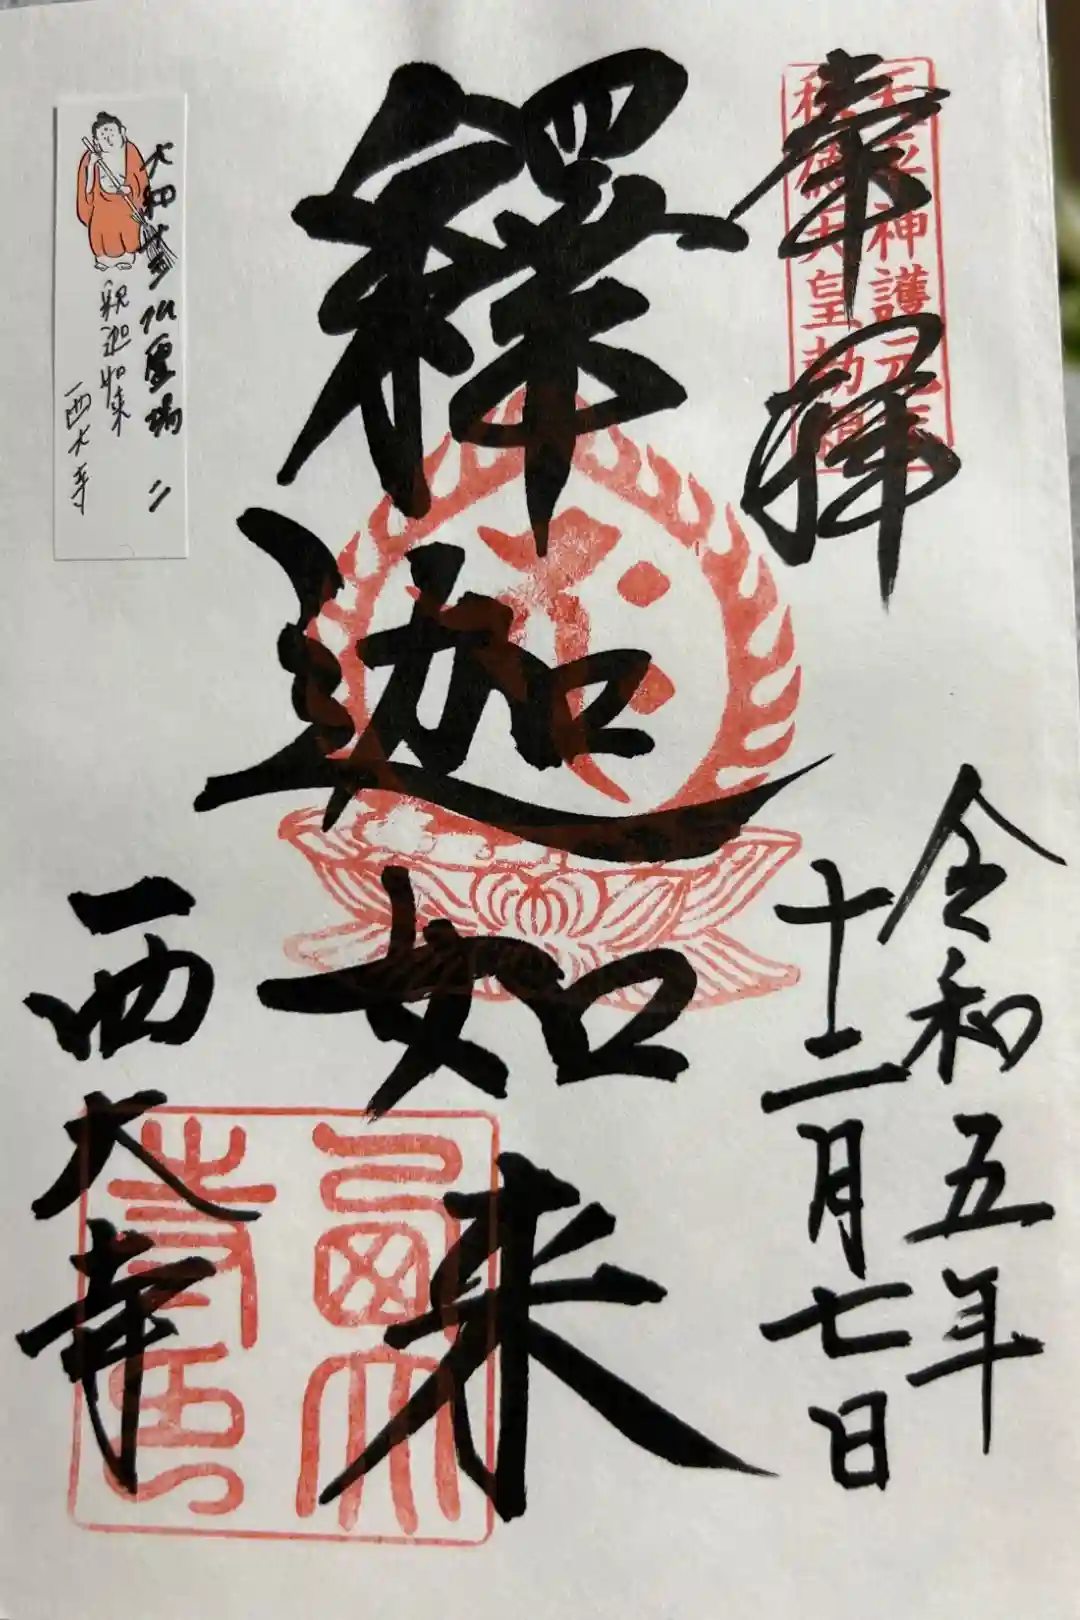 奉拝
天平神護元年
称徳天皇勅願
令和五年
十二月七日
釋迦如来
西大寺
大和十三仏霊場 二
釈迦如来
西大寺
西大
寺印